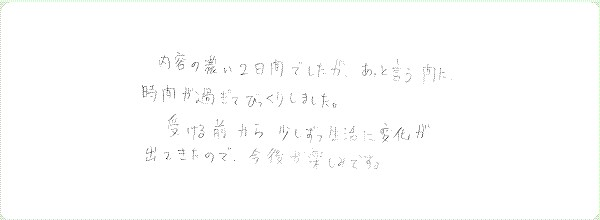 内容の濃い2日間でしたが、あっと言う間に、
時間が過ぎてびっくりしました。
受ける前から少しずつ生活に変化が
出てきたので、今後が楽しみです。